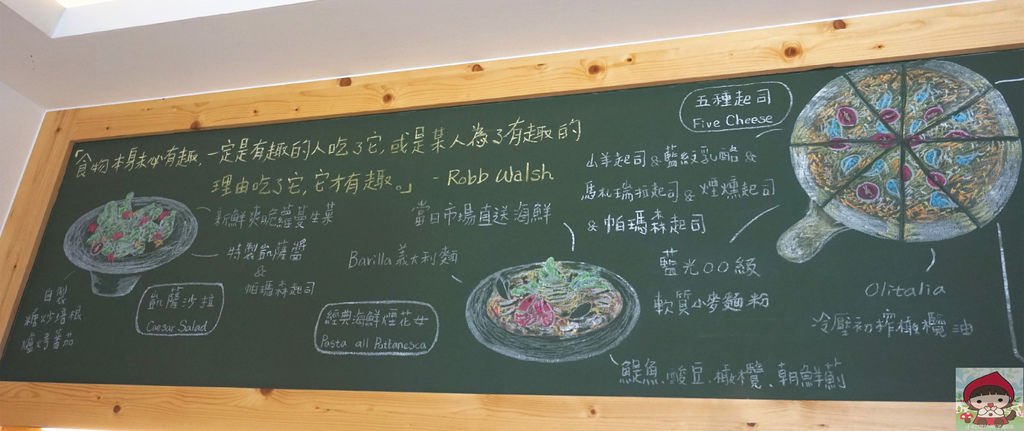 「食物本身並不有趣,一定是有趣的人吃了它,或是某人為了有趣的
理由吃了它,它才有趣。」 - Robb Walsh
新鮮爽脆蘿蔓生菜
特製凱薩醬
&
帕瑪森起司
自製
糖炒培根
爐烤蕃茄
凱薩沙拉
Caesar Salad
當日市場直送海鮮
Barilla義大利麵
經典海鮮煙花女
Pasta all Puttanesca
鯷魚、酸豆、橄欖、朝鮮薊
五種起司
Five Cheese
山羊起司&藍紋乳酪&
馬札瑞拉起司&煙燻起司
&帕瑪森起司
藍光00級
軟質小麥麵粉
Olitalia
冷壓初榨橄欖油